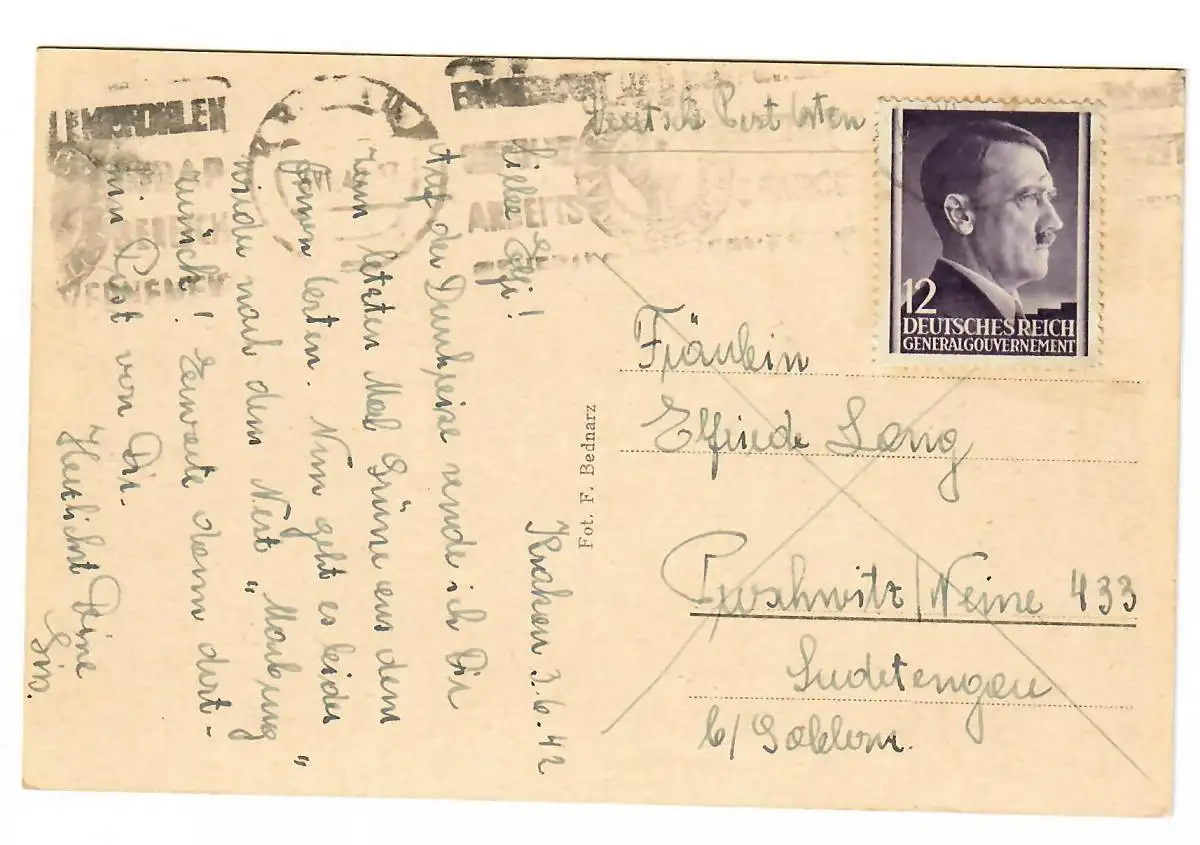 Deutsche Post Osten
12
DEUTSCHES REICH
GENERALGOUVERNEMENT
EMPFOHLEN
Fräulein
Elfriede Lang
Puschwitz/Neine 433
Sudetengau
b/
Fot. F. Bednarz
Krakau 3.6.42
Liebe Elfi!
Auf der Durchreise sende ich Dir
zum letzten Mal Grüße aus dem
fernen Osten. Nun geht es leider
wieder nach dem Nest "Marburg"
zurück! Erwarte dann dort-
hin Post von Dir.
Herzlichst Deine